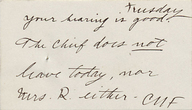 Tuesday
your hearing is good.
The Chief does not
leave today, nor
Mrs. R either - CUF